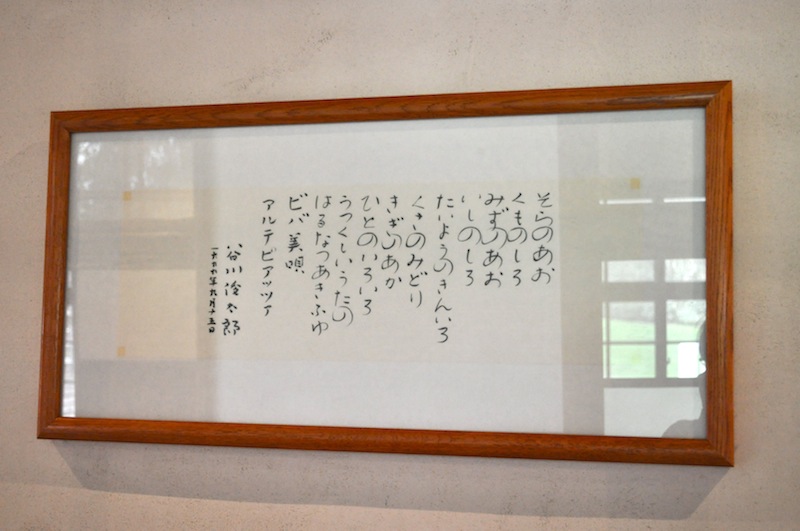 そらのあお
くものしろ
みずのあお
いしのしろ
たいようのきんいろ
くさのみどり
きぎのあか
ひとのいろいろ
うつくしいうたの
はるなつあきふゆ
ビバ美唄
アルテピアッツァ
谷川俊太郎
一九九九年九月十五日